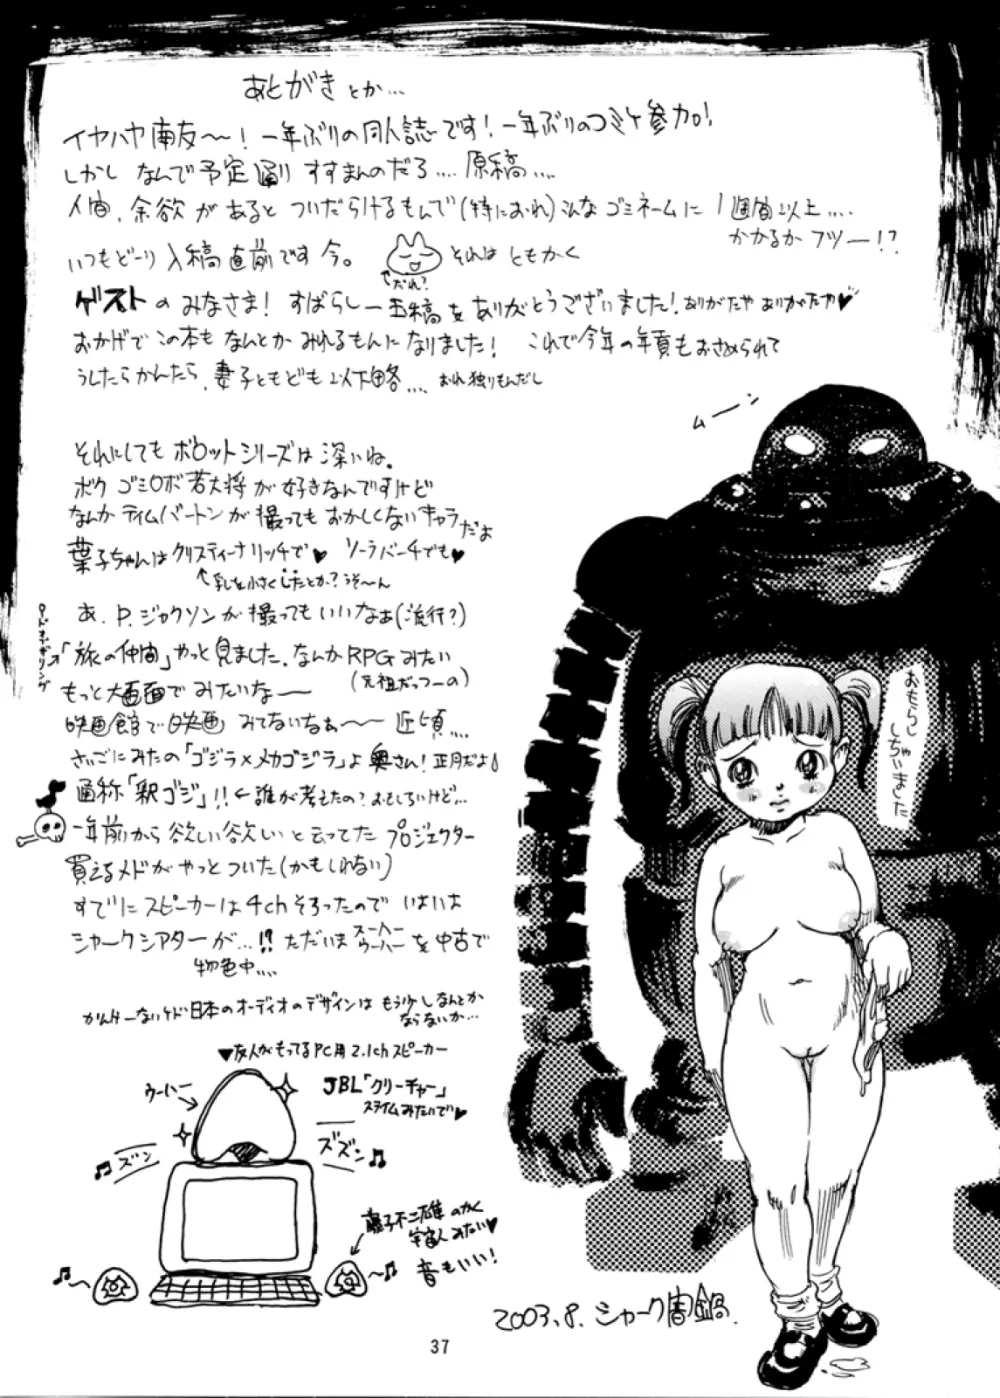 あとがきとか…
イヤハヤ南友〜!一年ぶりの同人誌です!一年ぶりのコミケ参加!
しかしなんで予定通りすすまんのだろ….原稿….
人間、余欲があるとついだらけるもんで(特におれ)こんなゴミネームに1週間以上….
かかるかフツー!?
いつもどーり入稿直前です今。
それはともかく
だれ?
ゲストのみなさま!すばらしー玉稿をありがとうございました!ありがたやありがたや♥
おかげでこの本もなんとかみれるもんになりました!これで今年の年貢もおさめられて
うしたらかんたら、妻子ともども以下略….おれ独りもんだし
ムーン
それにしてもボロットシリーズは深いね。
ボクゴミロボ若大将が好きなんですけど
なんかティムバートンが撮ってもおかしくないキャラだよ
葉子ちゃんはクリスティーナリッチで♥ソーラバーチでも♥
あ、P.ジャクソンが撮ってもいいなぁ(流行?)
ロードオブザリング
「旅の仲間」やっと見ました、なんかRPGみたい
(元祖だっつーの)
もっと大画面でみたいなー
映画館で映画みてないなぁ〜近頃….
さいごにみたの「ゴジラ×メカゴジラ」よ奥さん!正月だよ!
通称「釈ゴジ」!!←誰が考えたの?おもしろいけど…
一年前から欲しい欲しいと云ってたプロジェクター
買えるメドがやっとついた(かもしれない)
すでにスピーカーは4chそろったのでいよいよ
シャークシアターが…!?ただいまスーパーウーハーを中古で
物色中….
かんけーないけど日本のオーディオのデザインはもう少しなんとか
ならないか…
▼友人がもってるPC用2.1chスピーカー
JBL「クリーチャー」
スライムみたいで♥
ウーハー
ズズン♫
♫ズン
藤子不二雄のかく
宇宙人みたい♥
音もいい!
2003.8.シャーク闇鍋
37